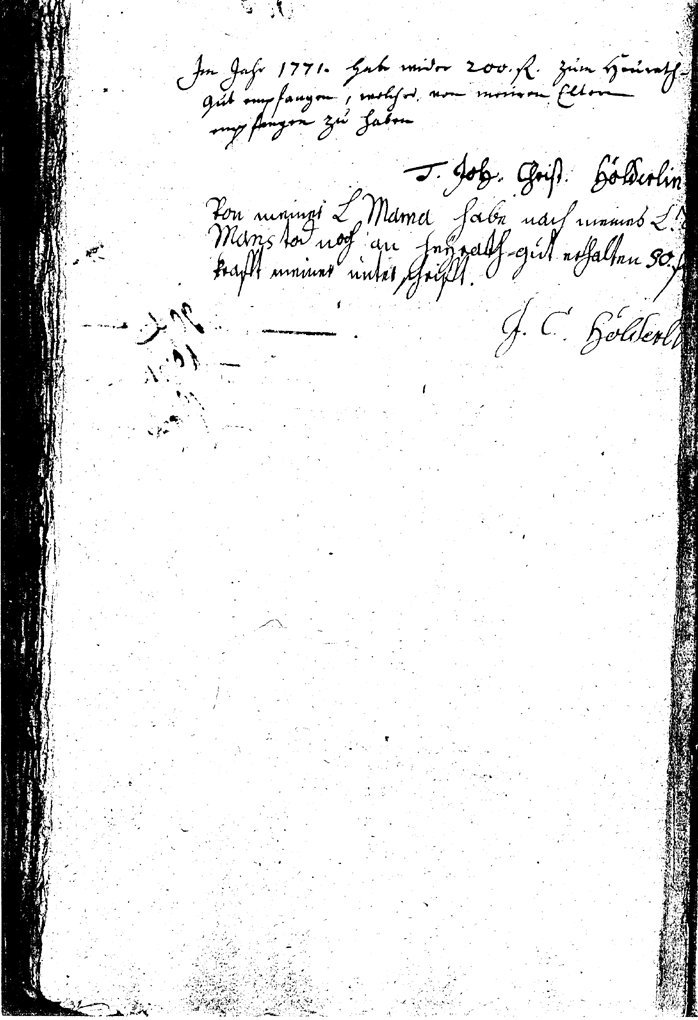 Im Jahr 1771. habe wider 200. fl. zum Heurath-
gut empfangen, welches von meinen Eltern
empfangen zu haben
T. Joh. Christ. Hölderlin
Von meiner L Mama habe nach meines L.
Mans tod noch an heÿrath-gut erhalten 50. f
krafft meiner unterschrifft.
J. C. Hölderl